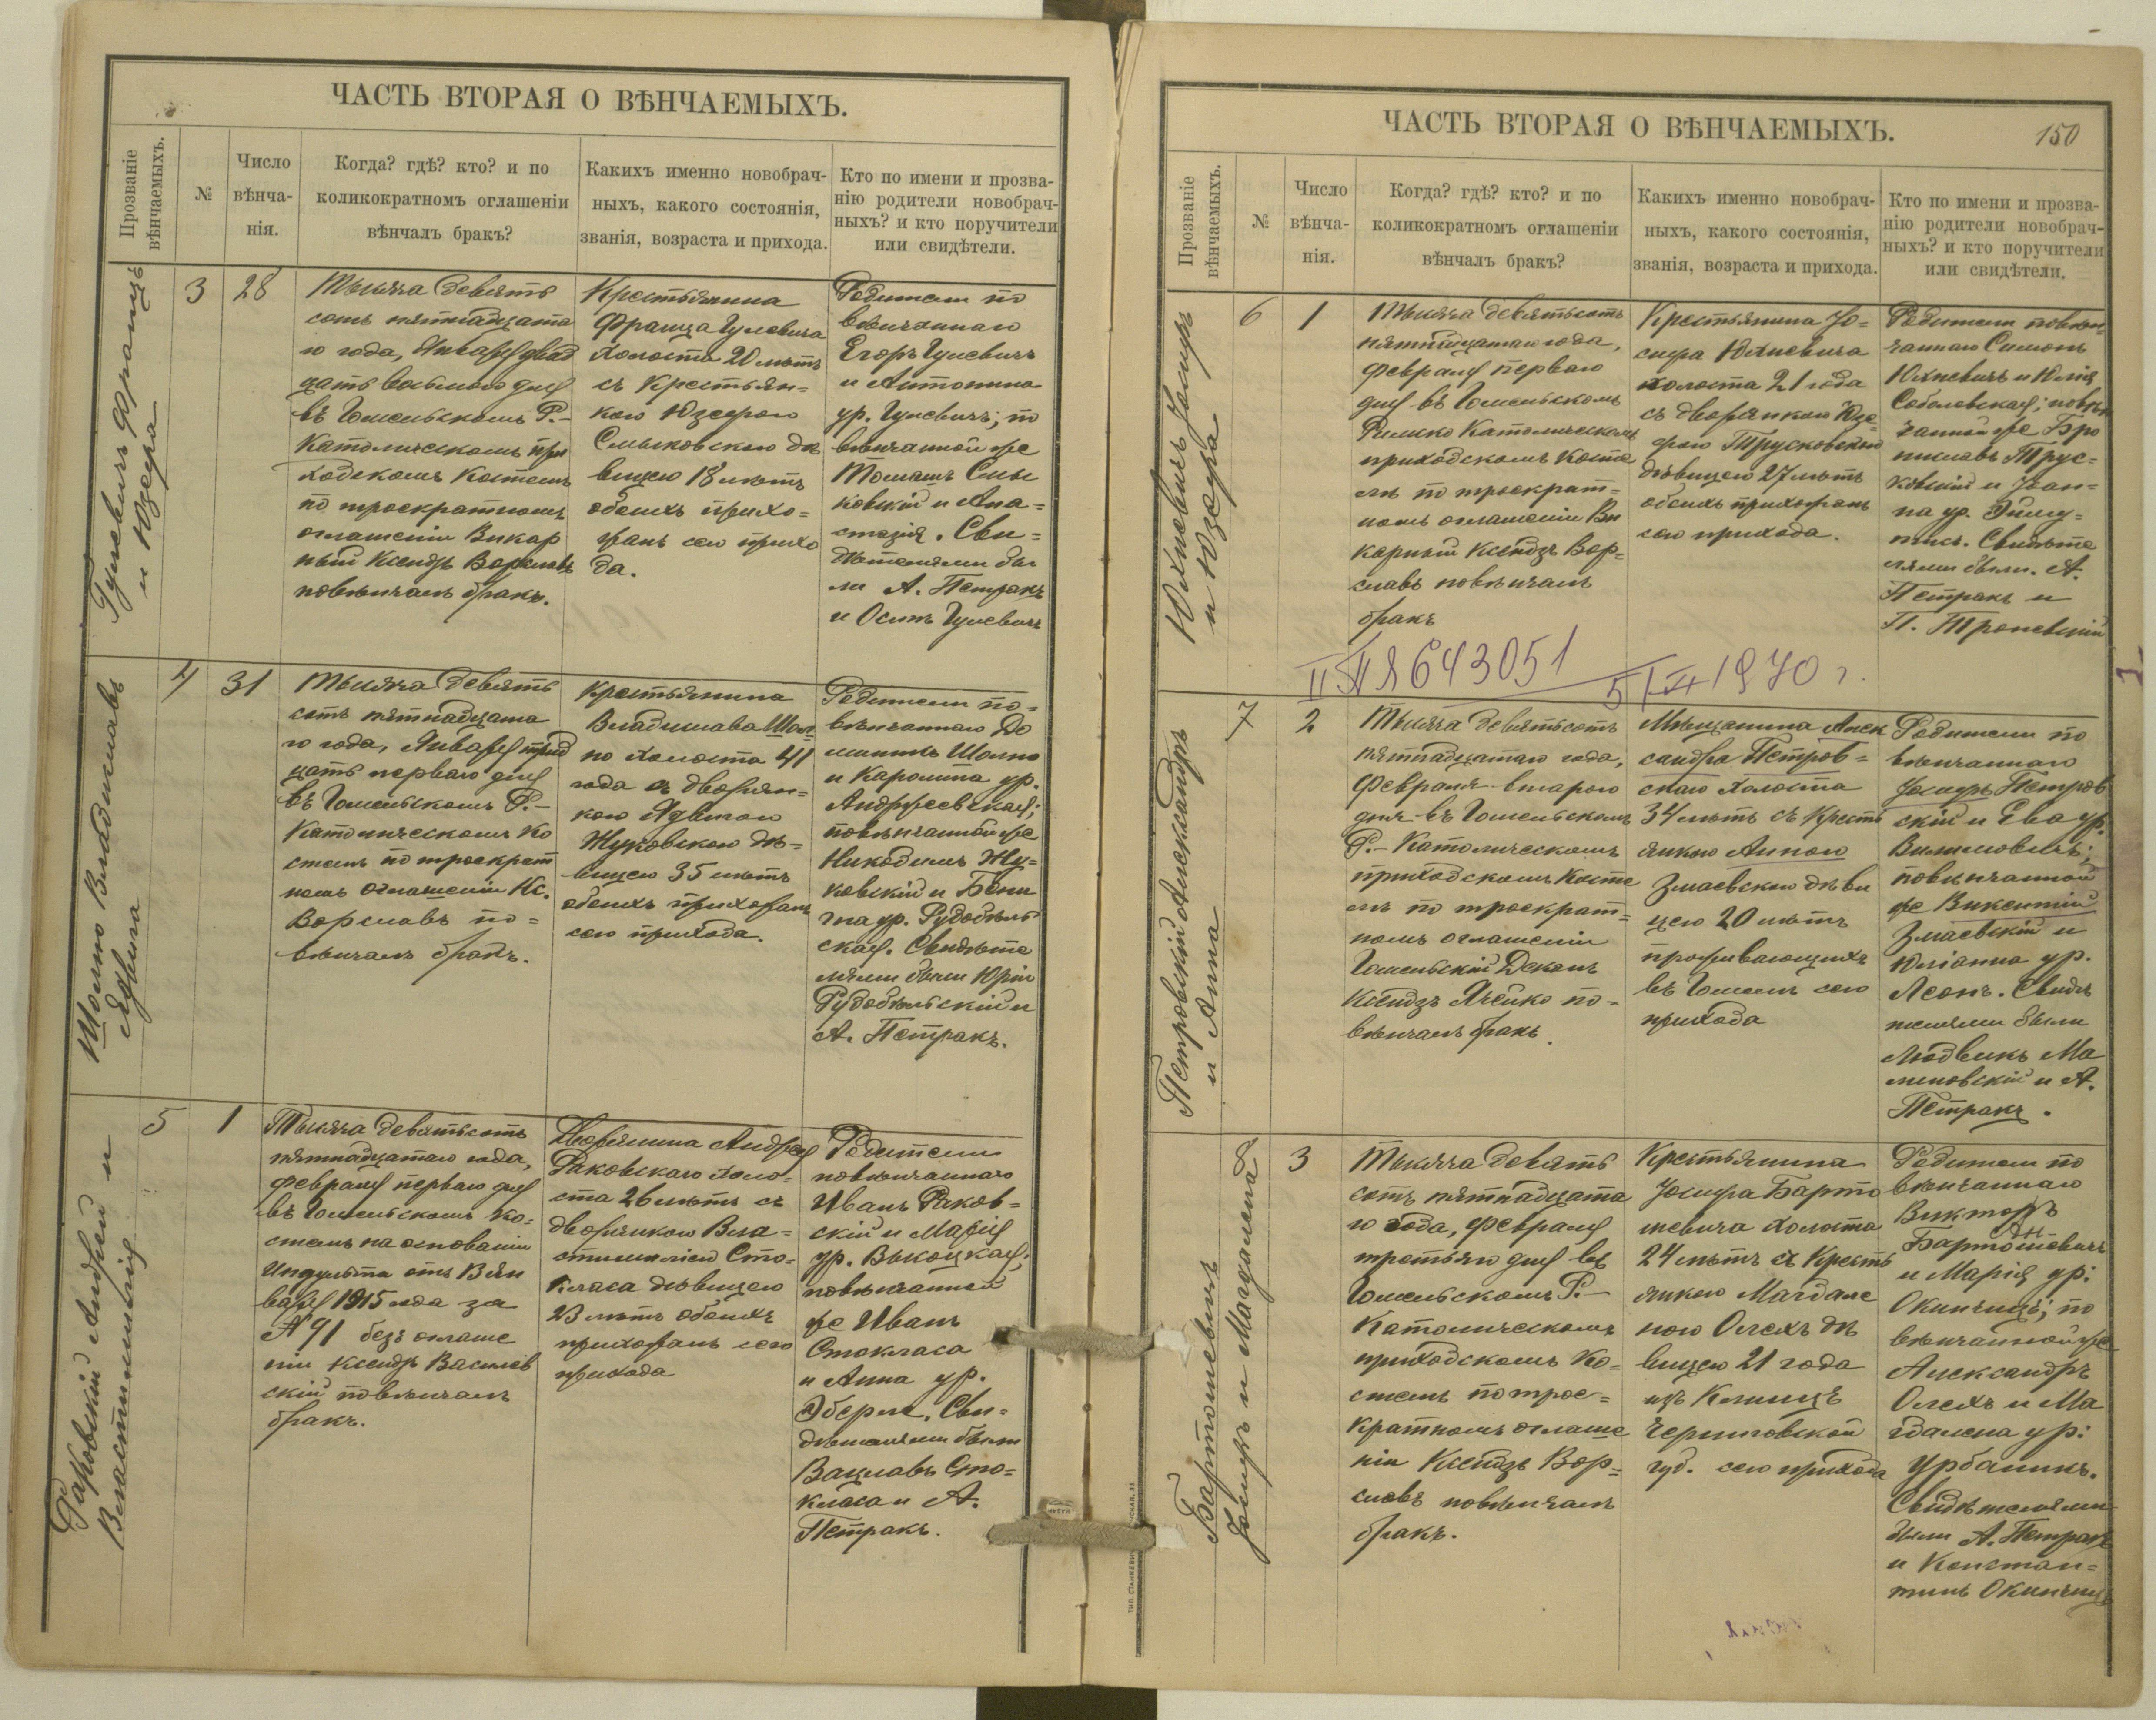 ЧАСТЬ ВТОРАЯ О ВѢНЧАЕМЫХЪ.
Прозваніе
вѣнчаемыхъ.
№
Число
вѣнча-
нія.
Когда? гдѣ? кто? и по
коликократномъ оглашеніи
вѣнчалъ бракъ?
Какихъ именно новобрач-
ныхъ, какого состоянія,
званія, возраста и прихода.
Кто по имени и прозва-
нію родители новобрач-
ныхъ? и кто поручители
или свидѣтели.
Гулевичъ Францъ
и Юзефа
3
28
Тысяча девять
сотъ пятнадцата
го года, Января двад
цать восьмого дня
въ Гомельскомъ Р.-
Католическомъ при
ходскомъ костелѣ
по троекратномъ
оглашеніи Викар
ный Ксендзъ Вориславъ
повѣнчалъ бракъ.
Крестьянина
Франца Гулевича
холоста 20 лѣтъ
съ Крестьян-
кою Юзефою
Смыковскою дѣ
вицею 18 лѣтъ
обоихъ прихо-
жанъ сего прихо
да.
Родители по
вѣнчаннаго
Егоръ Гулевичъ
и Антонина
ур. Гулевичъ; по
вѣнчанной же
Томашъ Смы
ковскій и Ана-
стазія. Сви-
дѣтелями бы
ли А. Петракъ
и Осипъ Гулевичъ
Шолно Владиславъ
и Ядвига
4
31
Тысяча девять
сотъ пятнадцата
го года, Января трид
цать перваго дня
въ Гомельскомъ Р.-
Католическомъ ко
стелѣ по троекрат
номъ оглашеніи Кс.
Вориславъ по-
вѣнчалъ бракъ.
Крестьянина
Владислава Шол
но холоста 41
года съ дворян-
кою Ядвигою
Жуковскою дѣ-
вицею 35 лѣтъ
обоихъ прихожанъ
сего прихода.
Родители по-
вѣнчаннаго До
миникъ Шолно
и Каролина ур.
Андржеевская;
повѣнчанной же
Никодимъ Жу-
ковскій и Бени
гна ур. Рудобѣль
ская. Свидѣте
лями были Юрій
Рудобѣльскій и
А. Петракъ.
Раковскій Андрей и
Властимилія
5
1
Тысяча девятьсотъ
пятнадцатаго года,
Февраля перваго дня
въ Гомельскомъ ко-
стелѣ на основаніи
Индульта отъ В Ян
варя 1915 года за
№ 91 безъ оглаше
нія ксендзъ Василев
скій повѣнчалъ
бракъ.
Дворянина Андрея
Раковскаго холо-
ста 26 лѣтъ съ
дворянкою Вла-
стимиліею Сто-
класа дѣвицею
23 лѣтъ обоихъ
прихожанъ сего
прихода
Родители
повѣнчаннаго
Иванъ Раков-
скій и Марія
ур. Высоцкая;
повѣнчанной
же Иванъ
Стокласа
и Анна ур.
Эберле. Сви-
дѣтелями были
Вацлавъ Сто-
класа и А.
Петракъ.
ЧАСТЬ ВТОРАЯ О ВѢНЧАЕМЫХЪ.
150
Прозваніе
вѣнчаемыхъ.
№
Число
вѣнча-
нія.
Когда? гдѣ? кто? и по
коликократномъ оглашеніи
вѣнчалъ бракъ?
Какихъ именно новобрач-
ныхъ, какого состоянія,
званія, возраста и прихода.
Кто по имени и прозва-
нію родители новобрач-
ныхъ? и кто поручители
или свидѣтели.
Юхневичъ Іосифъ
и Юзефа
6
1
Тысяча девятьсотъ
пятнадцатаго года,
Февраля перваго
дня въ Гомельскомъ
Римско Католическомъ
приходскомъ косте
лѣ по троекрат-
номъ оглашеніи Ви
карный Ксендзъ Вор-
славъ повѣнчалъ
бракъ
Крестьянина Іо-
сифа Юхневича
холоста 21 года
съ дворянкою Юзе-
фою Трусковскою
дѣвицею 27 лѣтъ
обоихъ прихожанъ
сего прихода.
Родители повѣн-
чаннаго Симонъ
Юхневичъ и Юлія
Соболевская; повѣн
чанной же Бро
ниславъ Трус-
ковскій и Іоан-
на ур.
Свидѣте
лями были. А.
Петракъ и
П. Троневскій
II ЯЯ 643051
5/VI 1970 г.
Петровскій Александръ
и Анна
7
2
Тысяча девятьсотъ
пятнадцатаго года,
Февраля второго
дня въ Гомельскомъ
Р.-Католическомъ
приходскомъ косте
лѣ по троекрат-
номъ оглашеніи
Гомельскій Деканъ
Ксендзъ Ячейко по-
вѣнчалъ бракъ.
Мѣщанина Алек
сандра Петров-
скаго холоста
34 лѣтъ съ Крестья
янкою Анною
Змаевскою дѣви
цею 20 лѣтъ
проживающихъ
въ Гомелѣ сего
прихода
Родители по
вѣнчаннаго
Іосифъ Петров
скій и Ева ур.
Вилимовичъ;
повѣнчанной
же Викентій
Змаевскій и
Юліанна ур.
Леонъ. Свидѣ
телями были
Людвикъ Ма
линовскій и А.
Петракъ.
Бартошевичъ
Іосифъ и Магдалена
8
3
Тысяча девять
сотъ пятнадцата
го года, Февраля
третьяго дня въ
Гомельскомъ Р.-
Католическомъ
приходскомъ ко-
стелѣ по трое-
кратномъ оглаше
ніи Ксендзъ Вор-
славъ повѣнчалъ
бракъ.
Крестьянина
Іосифа Барто
шевича холоста
24 лѣтъ съ Кресть
янкою Магдале
ною Олехъ дѣ
вицею 21 года
изъ Клинцъ
Черниговской
губ. сего прихода
Родители по
вѣнчаннаго
Викторъ
Бартошевичъ
и Марія ур:
Окинчицъ; по
вѣнчанной же
Александръ
Олехъ и Ма
гдалена ур:
Урбаникъ.
Свидѣтелями
были А. Петракъ
и Констан-
тинъ Окинчицъ